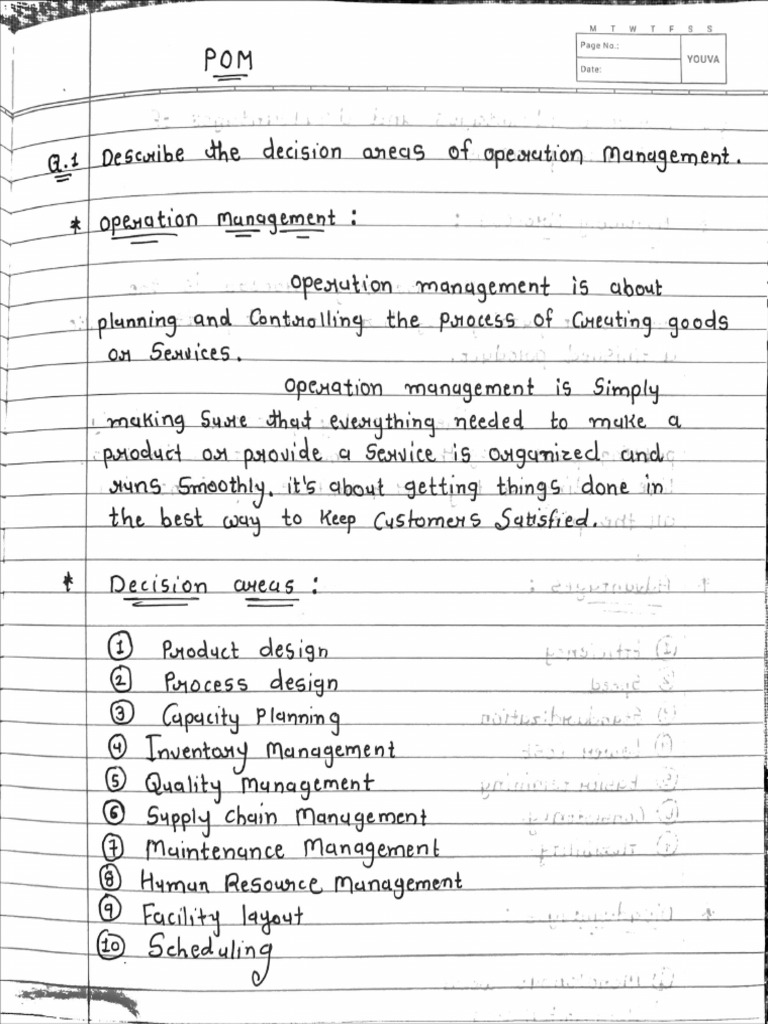 M T W T F S S
Page No.:
YOUVA
Date:
POM
Q.1 Describe the decision areas of operation Management.
* operation management :
operation management is about
planning and controlling the process of creating goods
or services.
operation management is simply
making sure that everything needed to make a
product or provide a service is organized and
runs smoothly. it's about getting things done in
the best way to keep customers satisfied.
* Decision areas :
① Product design
② Process design
③ Capacity planning
④ Inventory Management
⑤ Quality Management
⑥ Supply chain Management
⑦ Maintenance Management
⑧ Human Resource Management
⑨ Facility layout
⑩ Scheduling